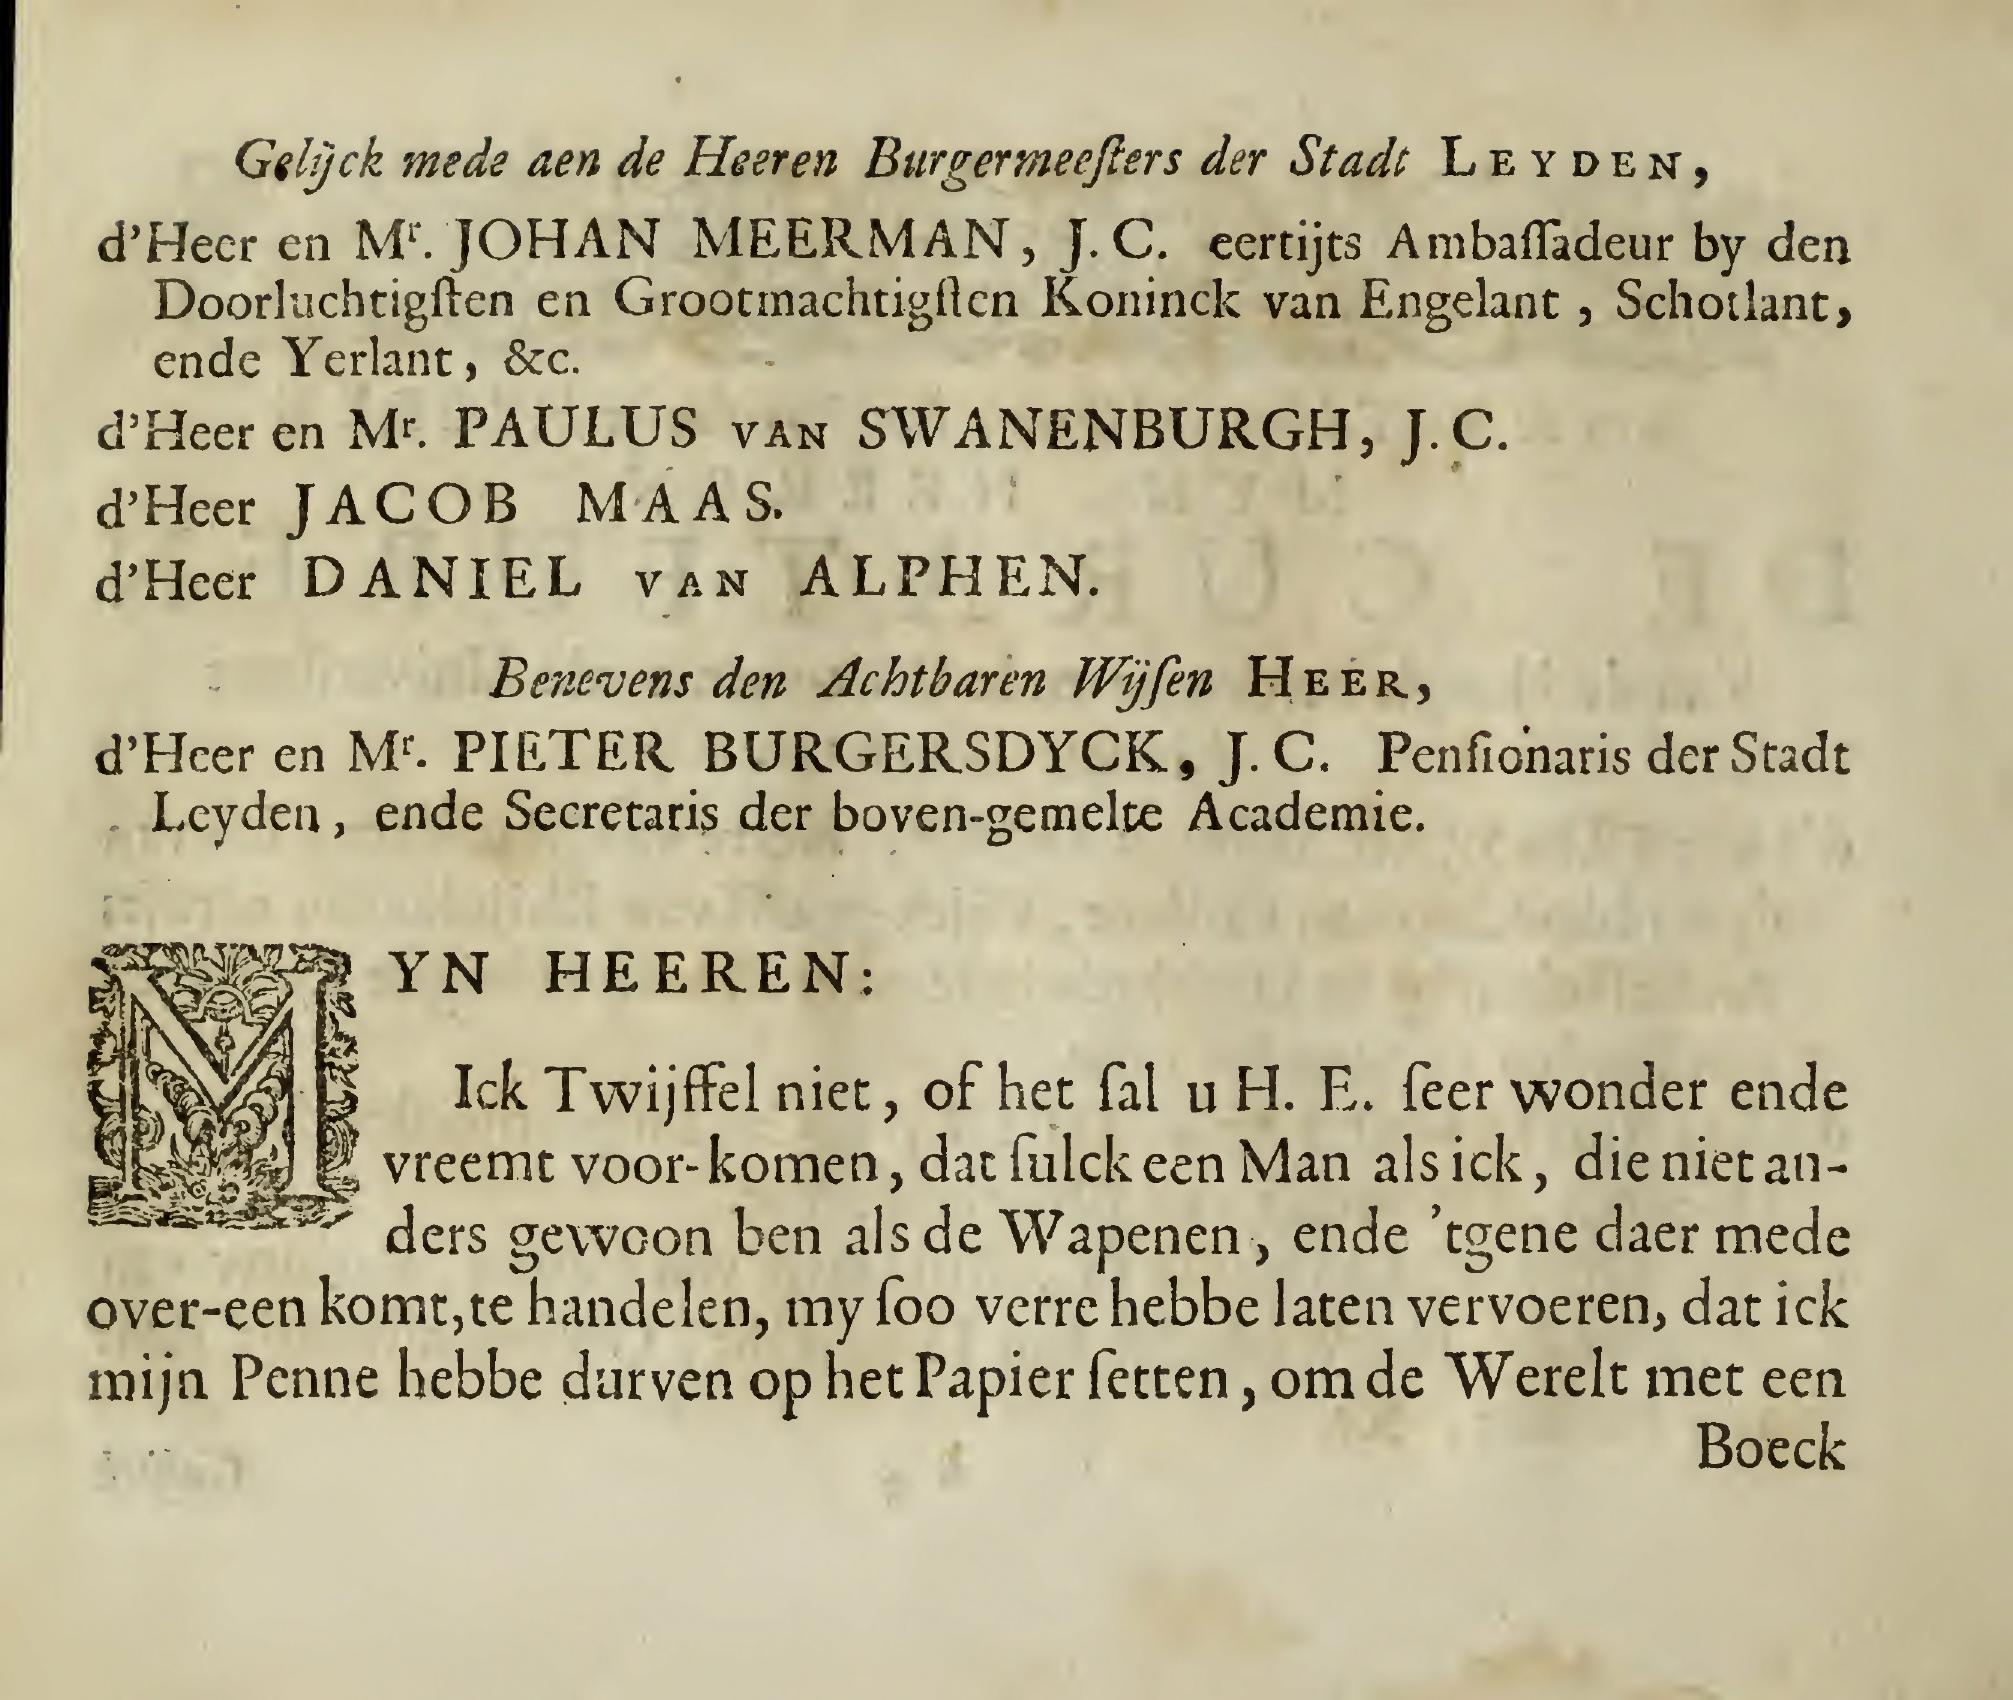 Gelijck mede aen de Heeren Burgermeeſters der Stadt LEYDEN,
d'Heer en Mr. JOHAN MEERMAN, J. C. eertijts Ambaſſadeur by den
Doorluchtigſten en Grootmachtigſten Koninck van Engelant, Schotlant,
ende Yerlant, &c.
d'Heer en Mr. PAULUS VAN SWANENBURGH, J. C.
d'Heer JACOB MAAS.
d'Heer DANIEL VAN ALPHEN.
Benevens den Achtbaren Wijſen HEER,
d'Heer en Mr. PIETER BURGERSDYCK, J. C. Penſionaris der Stadt
Leyden, ende Secretaris der boven-gemelte Academie.
MYN HEEREN:
Ick Twijffel niet, of het ſal u H. E. ſeer wonder ende
vreemt voor-komen, dat ſulck een Man als ick, die niet an-
ders gewoon ben als de Wapenen, ende 'tgene daer mede
over-een komt, te handelen, my ſoo verre hebbe laten vervoeren, dat ick
mijn Penne hebbe durven op het Papier ſetten, om de Werelt met een
Boeck